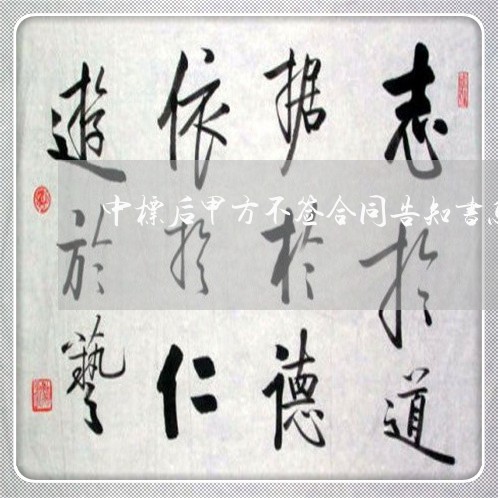 志於道
据於德
依於仁
遊於藝
中標后甲方不签合同告知書